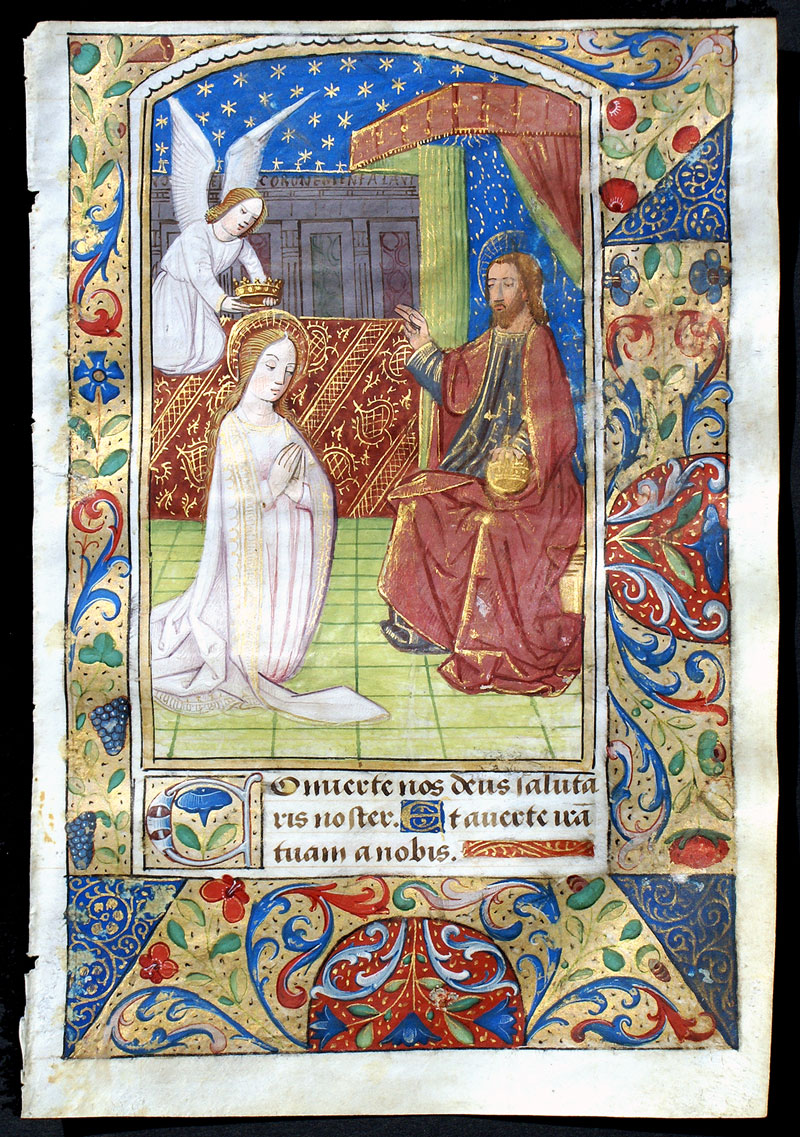 Conuerte nos deus saluta
ris noster. Et auerte irā
tuam a nobis.